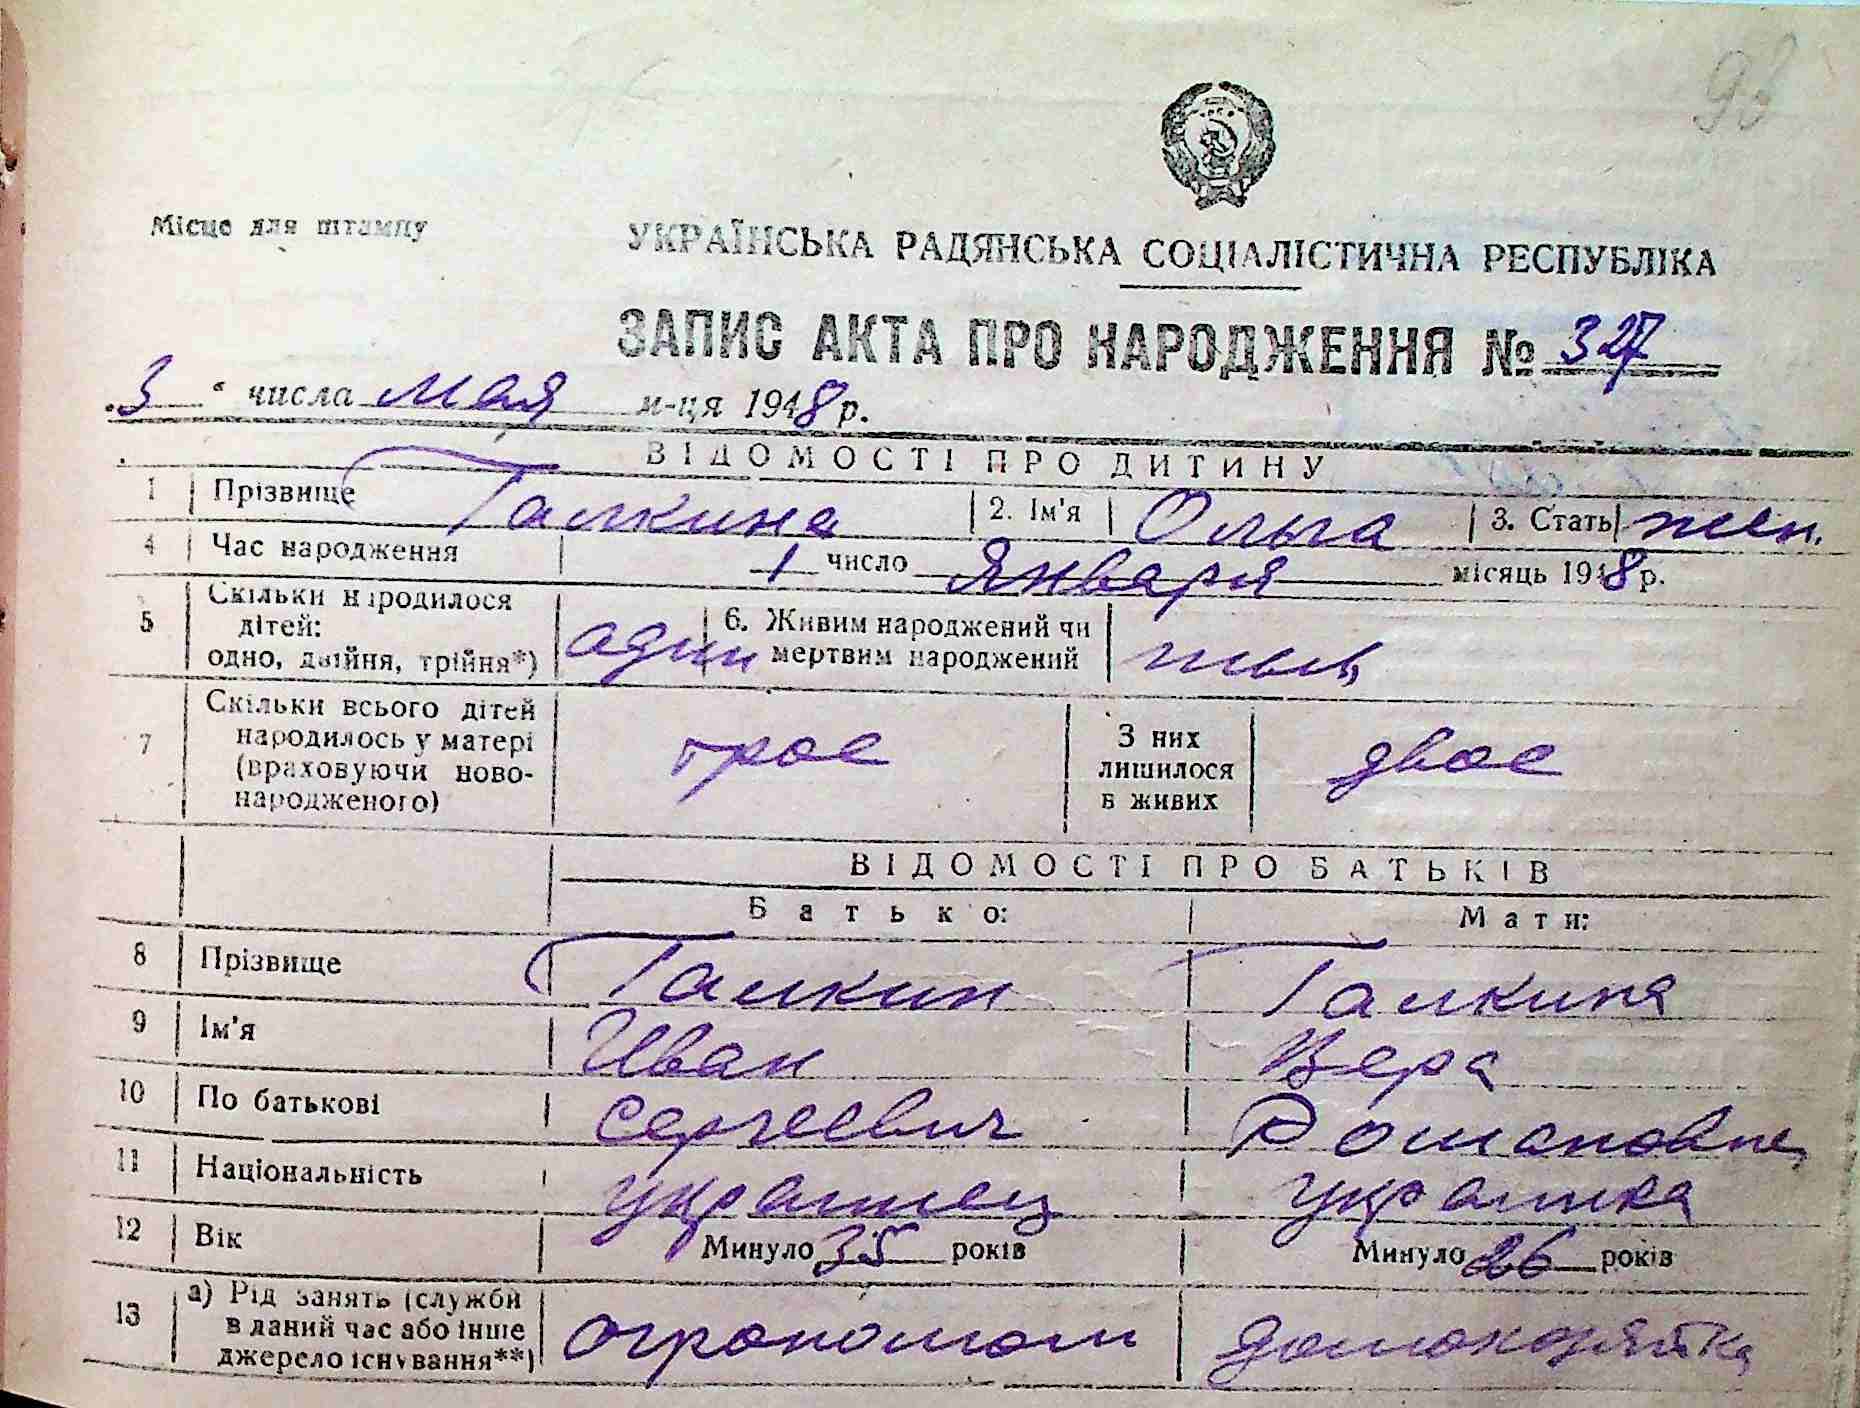 98
Місце для штампу
УКРАЇНСЬКА РАДЯНСЬКА СОЦІАЛІСТИЧНА РЕСПУБЛІКА
ЗАПИС АКТА ПРО НАРОДЖЕННЯ № 327
3 " числа мая м-ця 1948 р.
ВІДОМОСТІ ПРО ДИТИНУ
1 Прізвище Галкина 2. Ім'я Ольга 3. Стать жен.
4 Час народження 1 число Января місяць 1948 р.
5 Скільки народилося дітей: одно, двійня, трійня*) один 6. Живим народжений чи мертвим народжений жив
7 Скільки всього дітей народилось у матері (враховуючи ново-народженого) трое З них лишилося в живих двое
ВІДОМОСТІ ПРО БАТЬКІВ
Батько: Мати:
8 Прізвище Галкин Галкина
9 Ім'я Иван Вера
10 По батькові Сергеевич Романовна
11 Національність украинец украинка
12 Вік Минуло 35 років Минуло 26 років
13 а) Рід занять (служби в даний час або інше джерело існування**) огрономом домохозяйка